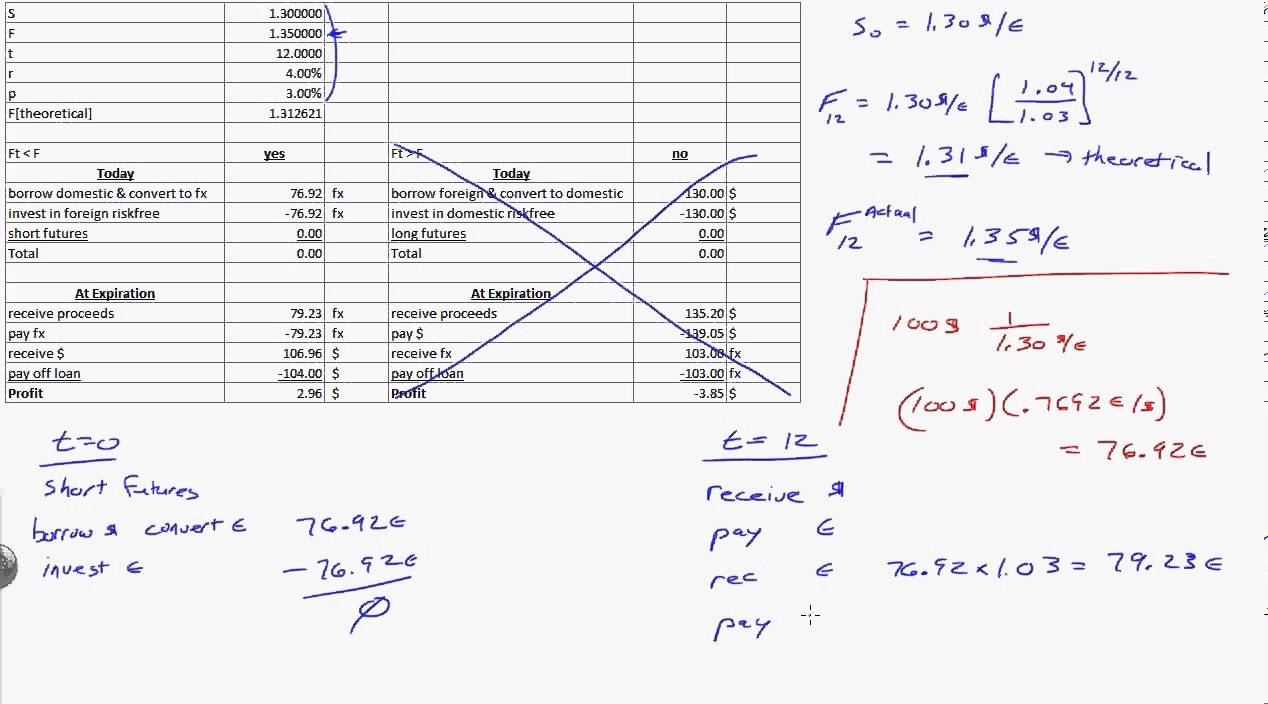 S 1.300000
F 1.350000
t 12.0000
r 4.00%
p 3.00%
F[theoretical] 1.312621
Ft < F yes Ft > F no
Today Today
borrow domestic & convert to fx 76.92 fx borrow foreign & convert to domestic 130.00 $
invest in foreign riskfree -76.92 fx invest in domestic riskfree -130.00 $
short futures 0.00 long futures 0.00
Total 0.00 Total 0.00
At Expiration At Expiration
receive proceeds 79.23 fx receive proceeds 135.20 $
pay fx -79.23 fx pay $ -139.05 $
receive $ 106.96 $ receive fx 103.00 fx
pay off loan -104.00 $ pay off loan -103.00 fx
Profit 2.96 $ Profit -3.85 $
S₀ = 1.30 $/€
F₁₂ = 1.30 $/€ [1.04/1.03]^12/12
= 1.31 $/€ → theoretical
F₁₂ Actual = 1.35 $/€
100$ 1/1.30 $/€
(100$)(.7692 €/$)
= 76.92€
t=0
short futures
borrow $ convert € 76.92€
invest € -76.92€
0
t= 12
receive $
pay €
rec € 76.92×1.03 = 79.23€
pay